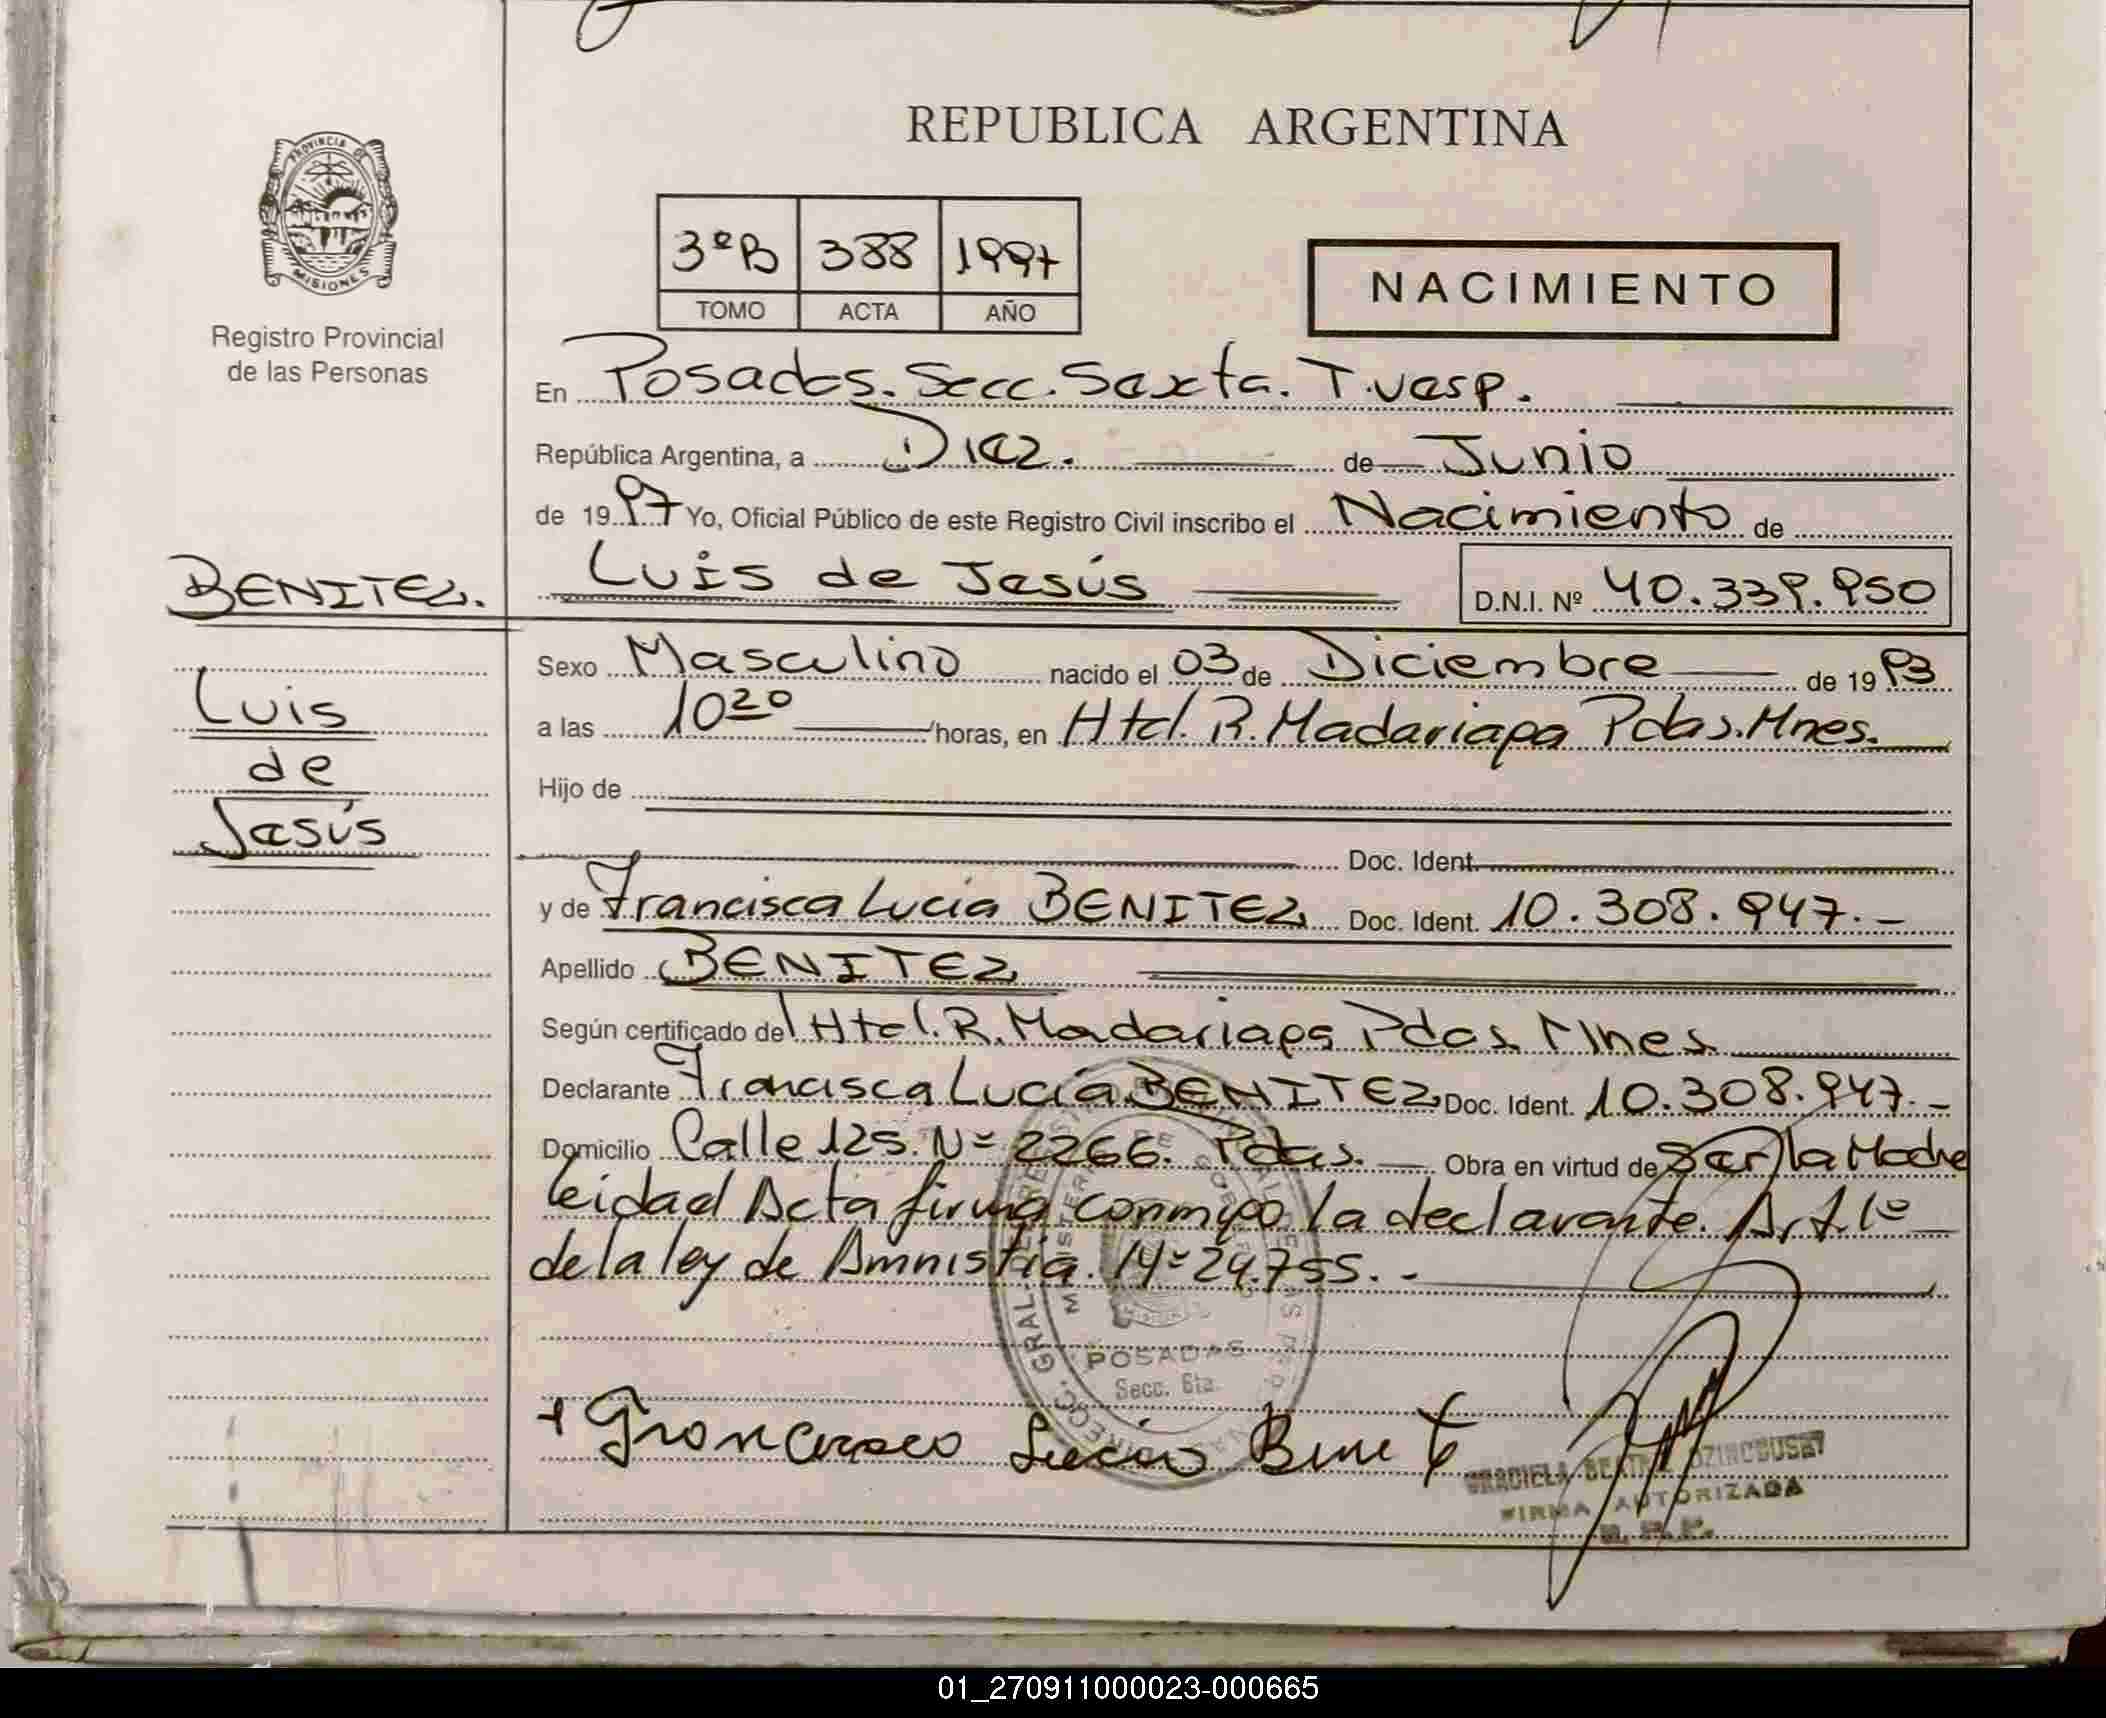 PROVINCIA DE
MISIONES
Registro Provincial
de las Personas
REPUBLICA ARGENTINA
3ºB 388 1997
TOMO ACTA AÑO
NACIMIENTO
En Posadas. Secc. Sexta. T. vesp.
República Argentina, a Diez. de Junio
de 1997 Yo, Oficial Público de este Registro Civil inscribo el Nacimiento de
BENITEZ.
Luis de Jesús D.N.I. Nº 40.339.950
Luis
de
Jesús
Sexo Masculino nacido el 03 de Diciembre de 1993
a las 10 20 horas, en Htal. R. Madariaga Pdas. Mnes.
Hijo de
Doc. Ident.
y de Francisca Lucia BENITEZ Doc. Ident. 10.308.947.-
Apellido BENITEZ
Según certificado del Htal. R. Madariaga Pdas Mnes
Declarante Francisca Lucia BENITEZ Doc. Ident. 10.308.947.-
Domicilio Calle 125. Nº 2266. Pdas. Obra en virtud de Ser la Madre
leida el Acta firma conmigo la declarante. Art. 1º
de la ley de Amnistia. Nº 24.755.-
POSADAS
Secc. 6ta.
+ Francisca Lucia Benit
GRACIELA BEATRIZ
FIRMA AUTORIZADA
R. P. P.
01_270911000023-000665